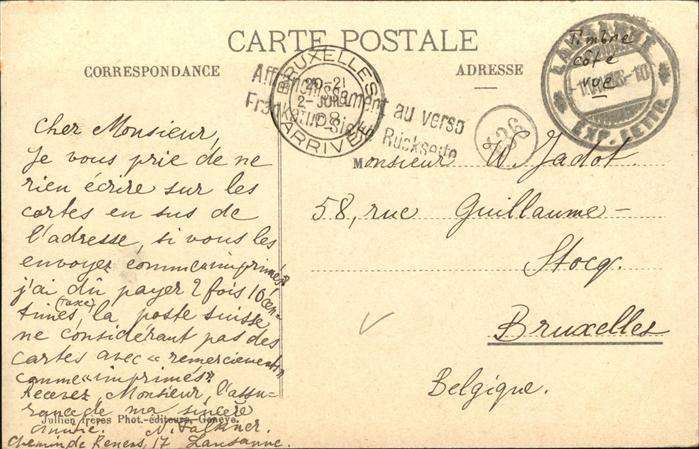 CARTE POSTALE
CORRESPONDANCE
ADRESSE
Timbre
côté
vue
LAUSANNE
EXP. LETTR.
BRUXELLES
20-21
2-JUIN
08
ARRIVÉE
Affranchissement au verso
Frankatur siehe Rückseite
Cher Monsieur,
Je vous prie de ne
rien écrire sur les
cartes en sus de
l'adresse, si vous les
envoyez comme «imprimés»
j'ai dû payer 2 fois 10 cen-
times, (taxe) la poste suisse
ne considérant pas des
cartes avec «remerciements»
comme «imprimés»
Recevez, Monsieur, l'assu-
rance de ma sincère
amitié. N. Falkner.
Chemin de Renens, 17 Lausanne.
Jullien frères Phot.-éditeurs, Genève.
Monsieur W. Jadot
58, rue Guillaume-
Stocq.
Bruxelles
Belgique.